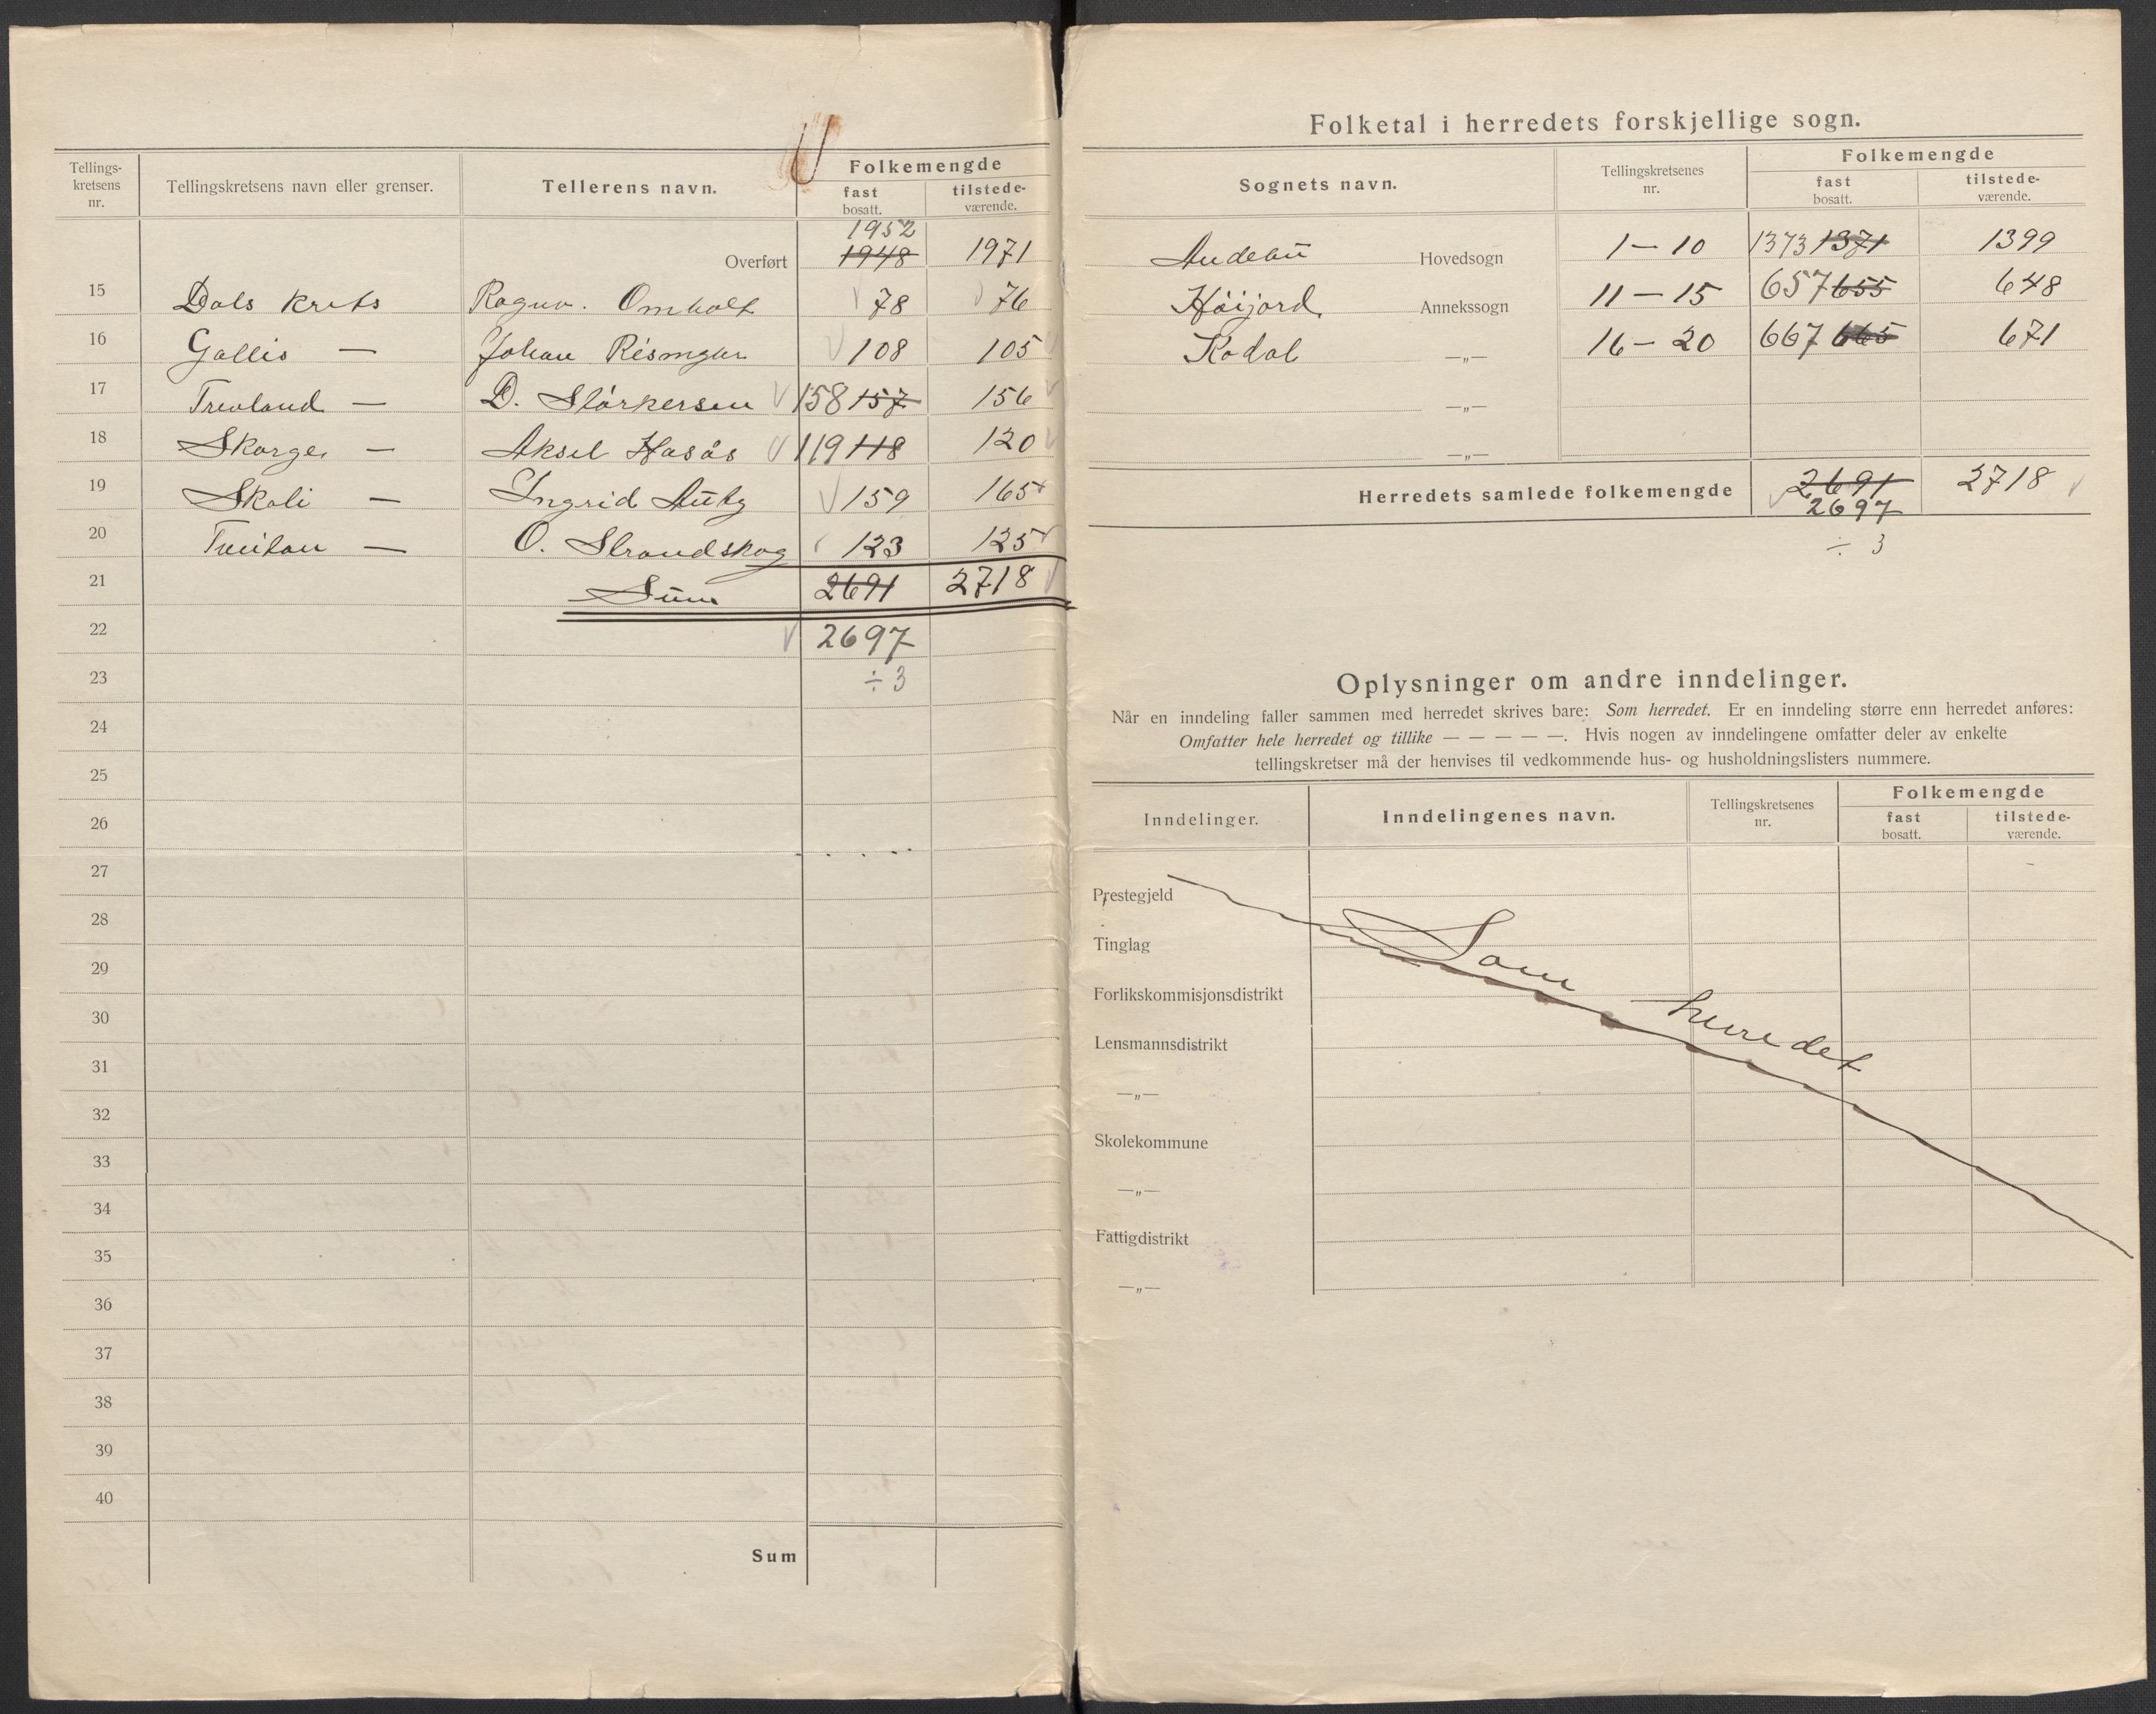 Tellings-kretsens nr. Tellingskretsens navn eller grenser. Tellerens navn. Folkemengde
fast bosatt. tilstede-værende.
1952
Overført 1948 1971
15 Dals krets Ragnv. Omholt 78 76
16 Gallis — Johan Rismyhr 108 105
17 Trevland — D. Størkersen 158 157 156
18 Skorge — Aksel Hasås 119 118 120
19 Skali — Ingrid Auby 159 165
20 Tveitan — O. Strandskog 123 125
21 Sum 2691 2718
22 2697
23 ÷ 3
24
25
26
27
28
29
30
31
32
33
34
35
36
37
38
39
40
Sum
Folketal i herredets forskjellige sogn.
Sognets navn. Tellingskretsenes nr. Folkemengde
fast bosatt. tilstede-værende.
Andebu Hovedsogn 1 — 10 1373 1371 1399
Høijord Annekssogn 11 — 15 657 655 648
Kodal —„— 16 — 20 667 665 671
—„—
—„—
Herredets samlede folkemengde 2691 2718
2697
÷ 3
Oplysninger om andre inndelinger.
Når en inndeling faller sammen med herredet skrives bare: Som herredet. Er en inndeling større enn herredet anføres:
Omfatter hele herredet og tillike — — — — —. Hvis nogen av inndelingene omfatter deler av enkelte
tellingskretser må der henvises til vedkommende hus- og husholdningslisters nummere.
Inndelinger. Inndelingenes navn. Tellingskretsenes nr. Folkemengde
fast bosatt. tilstede-værende.
Prestegjeld
Tinglag
Som herredet
Forlikskommisjonsdistrikt
Lensmannsdistrikt
—„—
Skolekommune
—„—
Fattigdistrikt
—„—